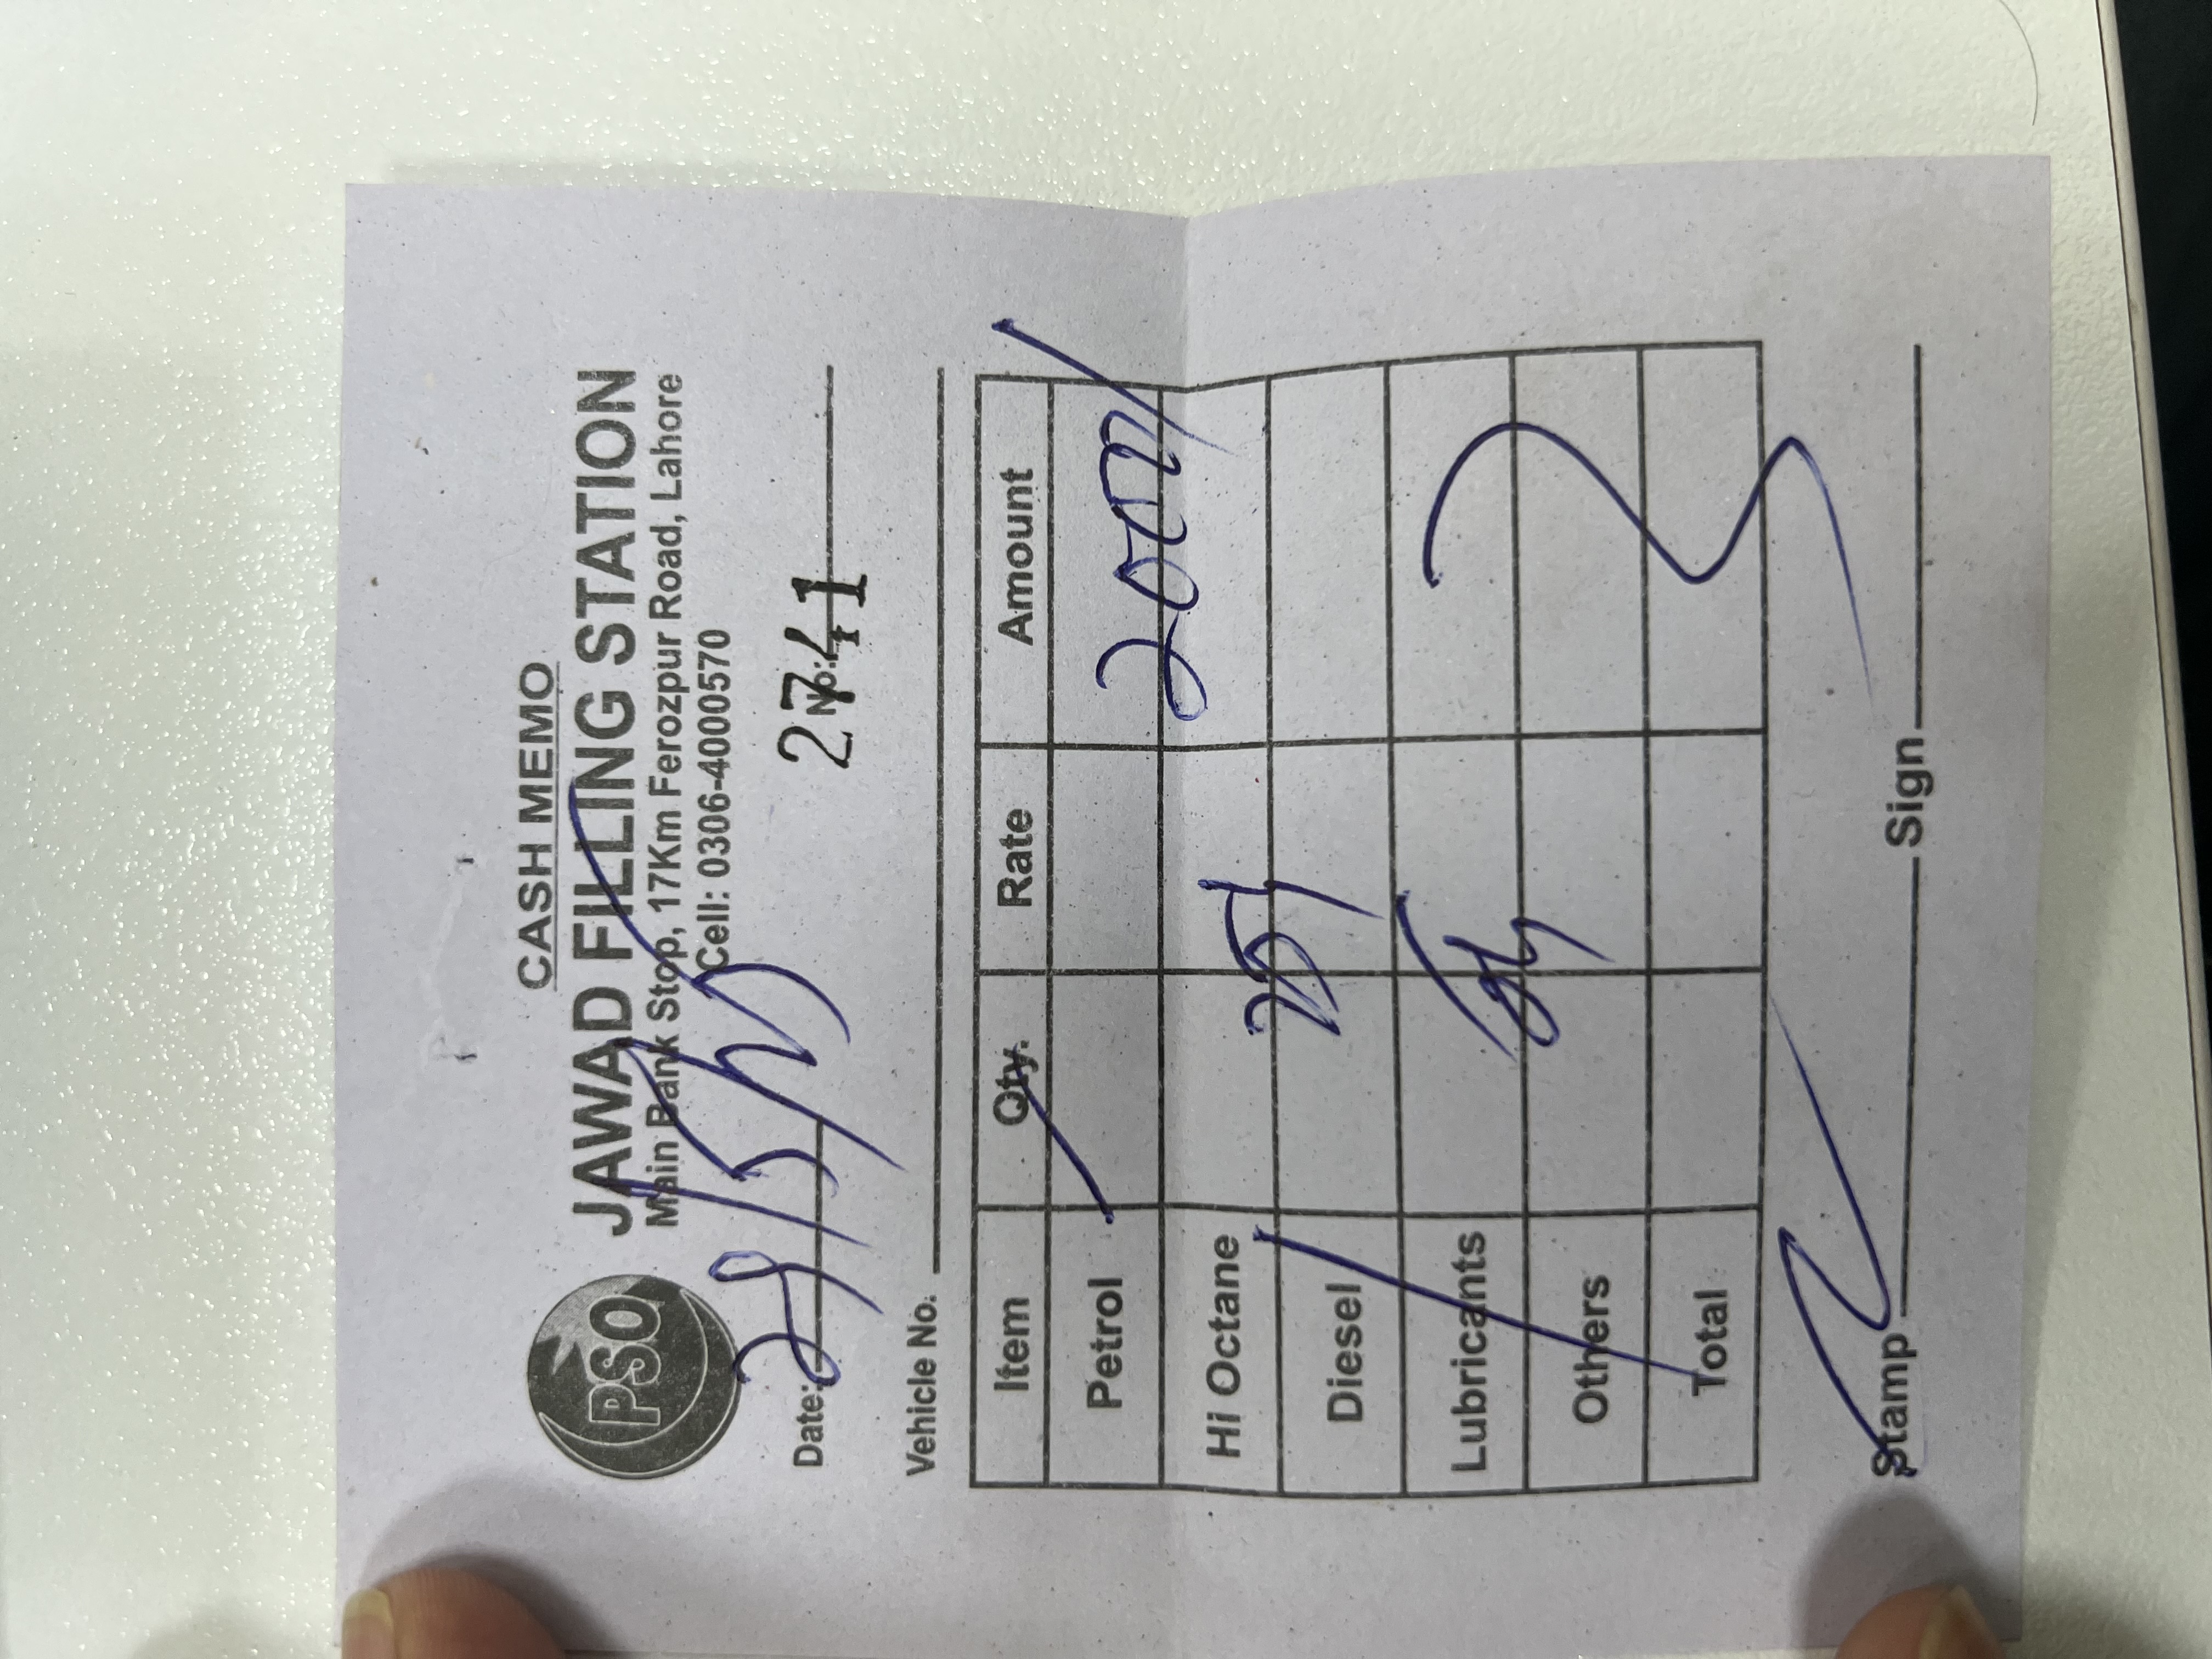 CASH MEMO
PSO
JAWAD FILLING STATION
Main Bank Stop, 17Km Ferozpur Road, Lahore
Cell: 0306-4000570
Date:
No: 2741
Vehicle No.
Item Qty. Rate Amount
Petrol 2000/
Hi Octane
Diesel
Lubricants
Others
Total
Stamp Sign